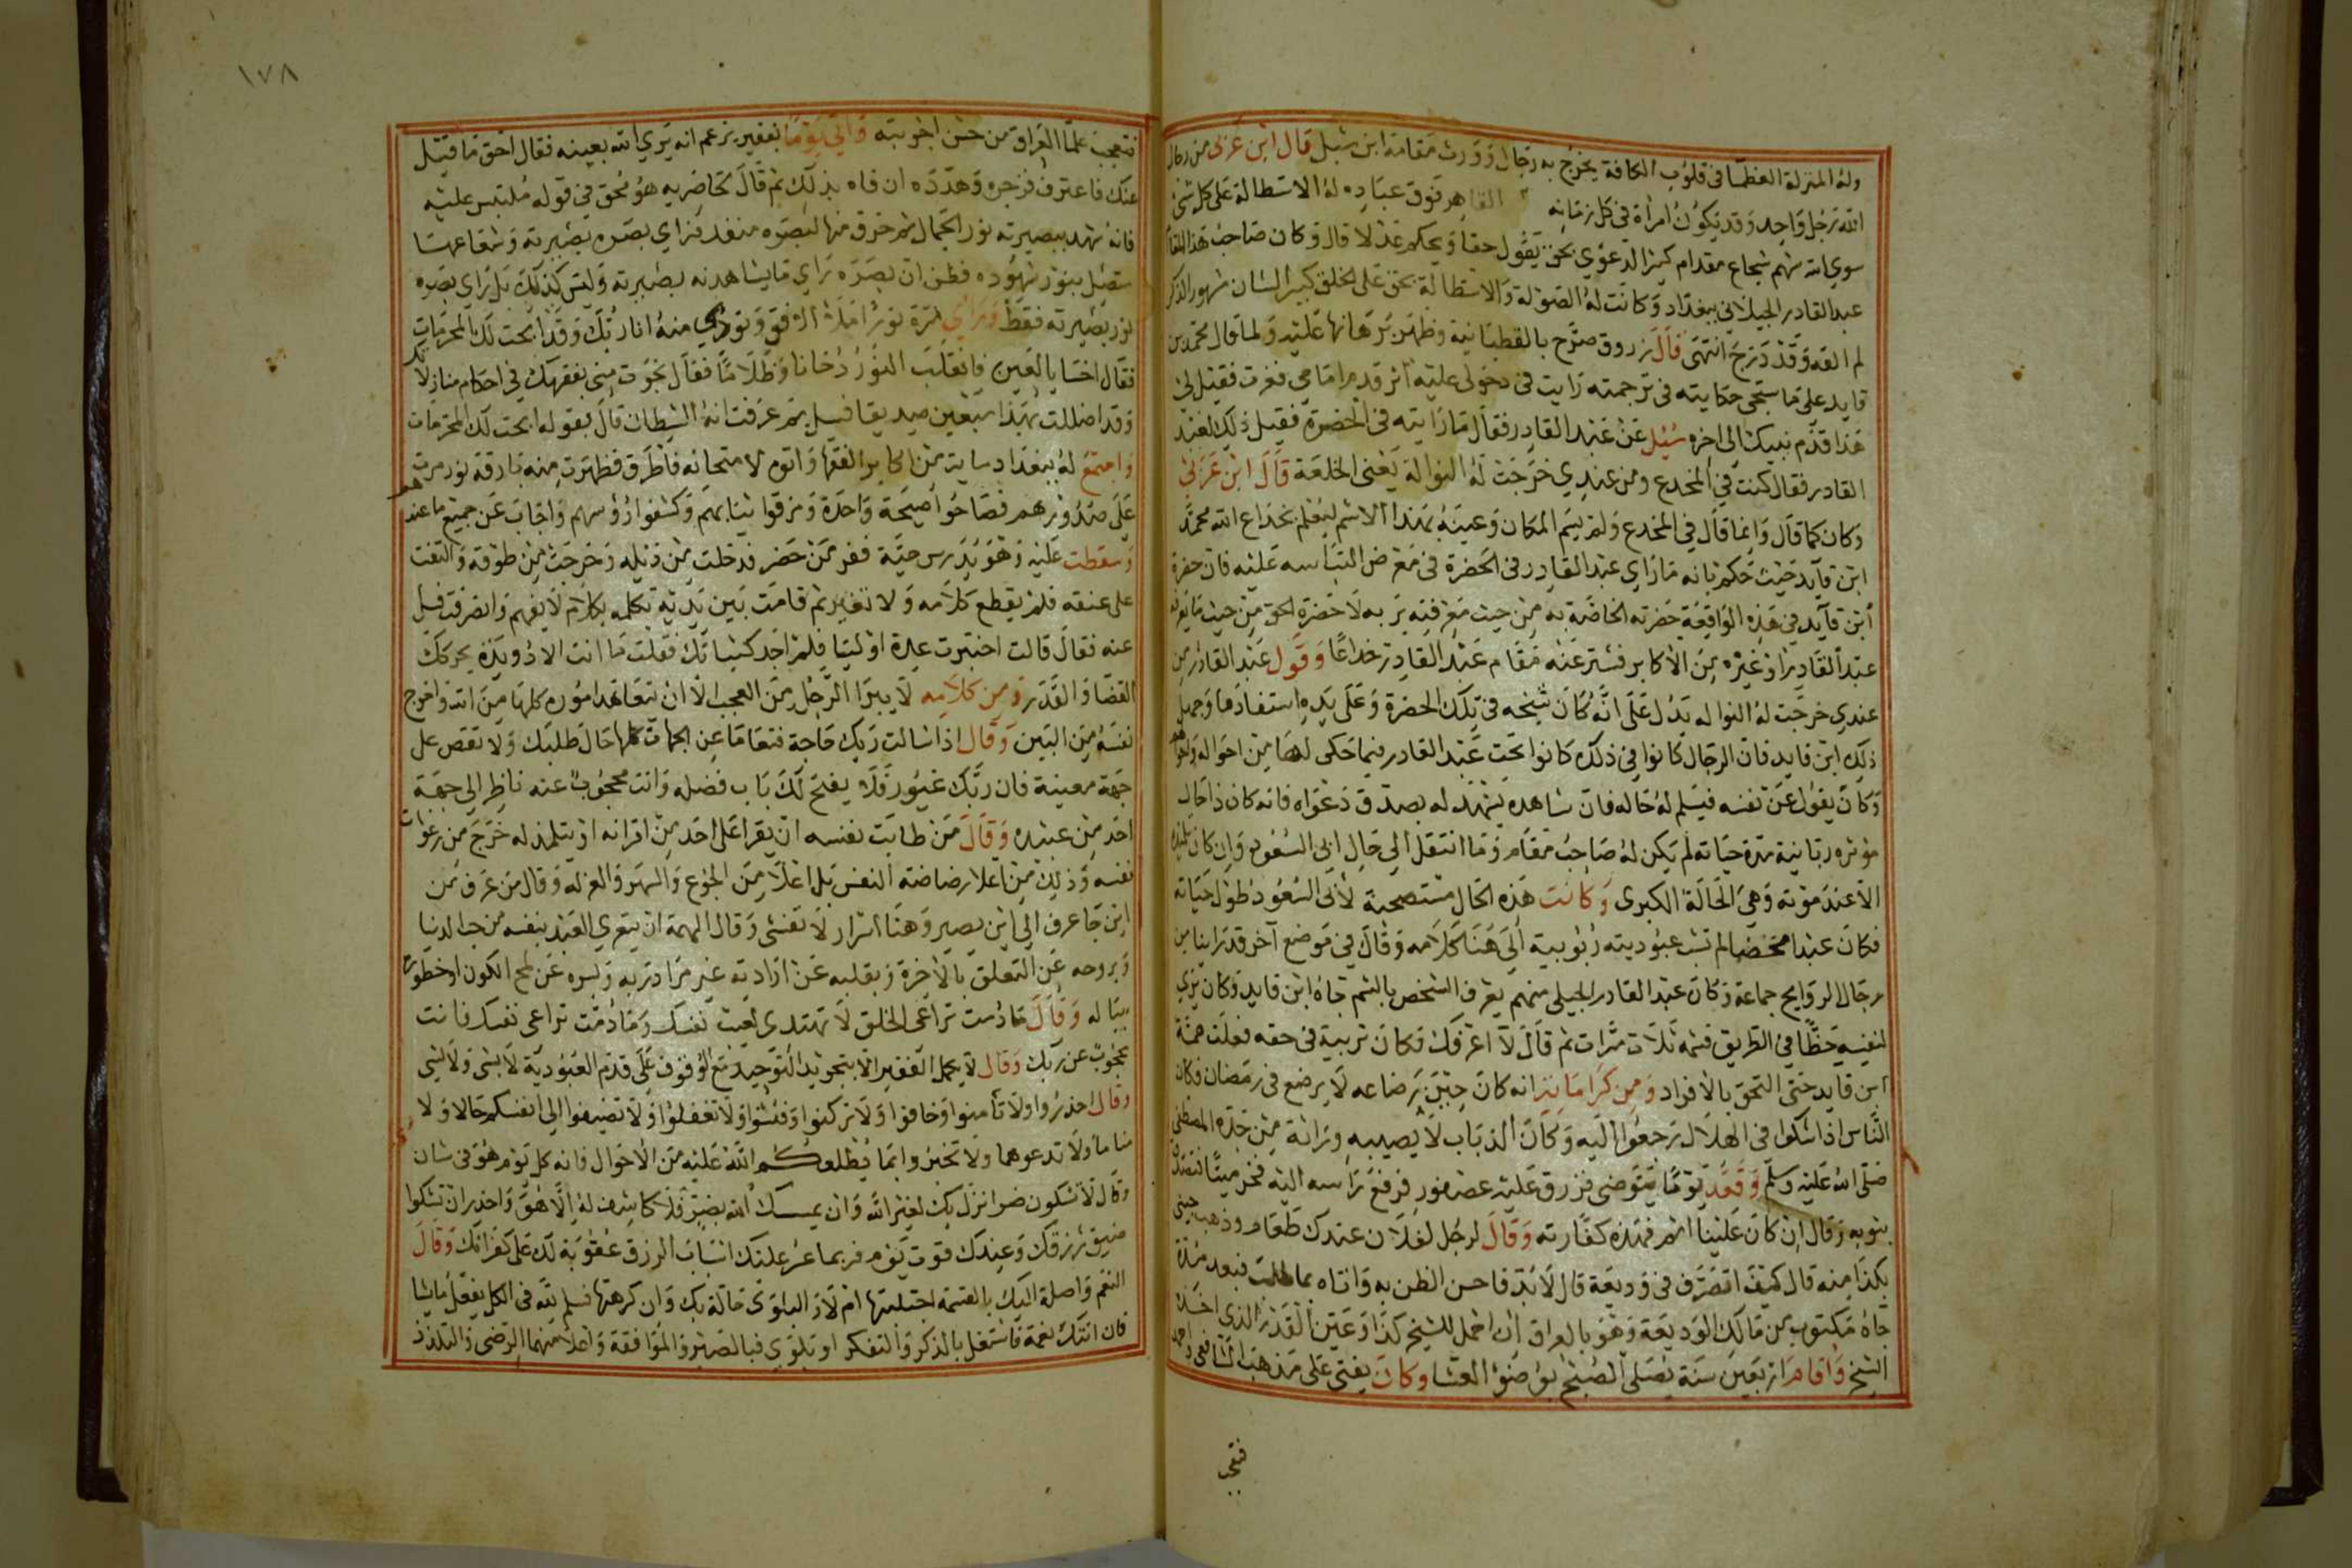 وله المنزلة العظما في قلوب الكافة يخرج به رجال وورث مقامه ابن شبل قال ابن عربي من رجال
الله رجل واحد وقد يكون امرأة في كل زمانه القاهر فوق عباده له الاستطالة على كل شئ
سوى الله شهم شجاع مقدام كبير الدعوى بحق يقول حقا ويحكم عدلا قال وكان صاحب هذا المقام
عبد القادر الجيلاني ببغداد وكانت له الصولة والاستطالة بحق على الخلق كبير الشان مشهور الذكر
لم القه وقد درج انتهى قال زروق صرح بالقطبانية وظهر برهانها عليه ولما قال محمد بن
قايد على ما ستجى حكايته في ترجمته رايت في دخولى عليه اثر قدم امامي فغرت فقيل لي
هذا قدم نبيك الى اخره سئل عن عبد القادر فقال ما رايته في الحضرة فقيل ذلك لعبد
القادر فقال كنت في المخدع ومن عندي خرجت له النوالة يعنى الخلعة قال ابن عربي
وكان كما قال وانما قال في المخدع ولم يسم المكان وعينه بهذا الاسم ليعلم بخداع الله محمد
ابن قايد حيث حكم بانه ما راى عبد القادر في الحضرة في معرض عليه فان حضرة
ابن قايد في هذه الواقعة حضرته الخاصة به من حيث معرفته بربه لا حضرة الحق من حيث ما يعرفه
عبد القادر او غيره من الاكابر فستر عنه مقام عبد القادر خداعا وقول عبد القادر من
عندي خرجت له النواله يدل على انه كان شيخه في تلك الحضرة وعلى يده استفادها وجهل
ذلك ابن قايد فان الرجال كانوا في ذلك كانوا تحت عبد القادر فيما حكى لنا من احواله واحوالهم
وكان يقول عن نفسه فيسلم له حاله فان شاهده يشهد له بصدق دعواه فانه كان ذا حال
موثره ربانية مدة حياته لم يكن له صاحب مقام وما انتقل الى حال ابى السعود وان كان تلميذه
الا عند موته وهى الحالة الكبرى وكانت هذه الحال مستصحبة لابى السعود طول حياته
فكان عبدا محضا لم تشب عبوديته ربوبية الى هنا كلامه وقال في موضع آخر قد راينا من
رجال الروايح جماعة وكان عبد القادر الجيلى منهم يعرف الشخص بالشم جاه ابن قايد وكان يرى
لنفسه حظا في الطريق فشمه ثلاث مرات ثم قال لا اعرفك فكان تربية في حقه فعلت همة
ابن قايد حتى التحق بالافراد ومن كراماته انه كان حين رضاعه لا يرضع في رمضان فكان
الناس اذا شكوا في الهلال رجعوا اليه وكان الذباب لا يصيبه وراثة من جده المصطفى
صلى الله عليه وسلم وقعد يوما يتوضى فزرق عليه عصفور فرفع راسه اليه فخر ميتا فتصدق
بثوبه وقال ان كان علينا اثم فهذه كفارته وقال لرجل لفلان عندك طعام وذهب جئني
بكذا منه قال كيف اتصرف في وديعة قال لا بد فاحسن الظن به واتاه بما طلب فبعد مدة
جاه مكتوب من مالك الوديعة وهو بالعراق ان احمل للشيخ كذا وعين القدر الذى اخذه
الشيخ واقام اربعين سنة يصلى الصبح بوضوء العشا وكان يفتى على مذهب الشافعى واحمد
فتعجب
١٧٨
فتعجب علما العراق من حسن اجوبته واتي يوما بفقير يزعم انه يرى الله بعينه فقال احق ما قيل
عنك فاعترف فزجره وهدده ان فاه بذلك ثم قال لحاضريه هو محق في قوله ملتبس عليه
فانه شهد ببصيرته نور الجمال ثم خرق منها لبصره منفذ فراى بصره بصيرته وشعاعها
متصل بنور شهوده فظن ان بصره راى ما يشاهدنه بصيرته وليس كذلك بل راى بصره
نور بصيرته فقط وراي مرة نورا ملا الافق ونودي منه انا ربك وقد ابحت لك المحرمات
فقال اخسا يا لعين فانقلب النور دخانا وظلاما فقال نجوت مني بفقهك في احكام منازلاتك
وقد اضللت بهذا سبعين صديقا قيل بم عرفت انه الشيطان قال بقوله ابحت لك المحرمات
واجتمع له ببغداد ماية من اكابر الفقها واتوه لامتحانه فاطرق فظهرت منه بارقة نور مرت
على صدورهم فصاحوا صيحة واحدة ومزقوا ثيابهم وكشفوا رؤسهم واجاب عن جميع ما عندهم
وسقطت عليه وهو يدرس حية ففر من حضر فدخلت من ذيله وخرجت من طوقه والتفت
على عنقه فلم يقطع كلامه ولا تغير ثم قامت بين يديه تكلمه بكلام لا يفهم وانصرفت قيل
عنه فقال قالت اختبرت عدة اوليا فلم اجد كثباتك فقلت ما انت الا دويدة يحركك
القضا والقدر ومن كلامه لا يبرا الرجل من العجب الا ان شاهد اموره كلها من الله واخرج
نفسه من البين وقال اذا سالت ربك حاجة فتعاما عن الجهات كلها حال طلبك ولا تقص على
جهة معينة فان ربك غيور فلا يفتح لك باب فضله وانت محجوب عنه ناظر الى جهة
احد من عبيده وقال من طابت نفسه ان يقرا على احد من اقرانه او يتلمذ له خرج من رعونات
نفسه وذلك من اعلا رياضة النفس بل اعلا من الجوع والسهر والعزله وقال من عرف من
اين جا عرف الى اين يصير وهنا اسرار لا تفشى وقال الهمة ان يتعرى العبد بنفسه من حب الدنيا
وبروحه عن التعلق بالاخرة وبقلبه عن ارادته غير مراد ربه وبسره عن لمح الكون او خطوره
بباله وقال ما دمت تراعى الخلق لا تهتدى لعيب نفسك وما دمت تراعى نفسك فانت
محجوب عن ربك وقال لا يكمل الفقير الا بتجريد التوحيد مع الوقوف على قدم العبودية لا بشئ ولا لشئ
وقال احذروا ولا تأمنوا وخافوا ولا تركنوا وفتشوا ولا تغفلوا ولا تضيفوا الى انفسكم حالا ولا
مقاما ولا تدعوهما ولا تخبروا بما يطلعكم الله عليه من الاحوال فانه كل يوم هو في شان
وقال لا تشكون ضرا نزل بك لغير الله وان يمسسك الله بضر فلا كاشف له الا هو واحذر ان تشكوا
ضيق رزقك وعندك قوت يوم فربما عسر عليك اسباب الرزق عقوبة لك على كفرانك وقال
النعم واصلة اليك بالقسمة اجتلبتها ام لا والبلوى حالة بك وان كرهتها فسلم لله في الكل يفعل ما يشا
فان اتتك نعمة فاشتغل بالذكر والتفكر او بلوى فبالصبر والموافقة واعلا منهما الرضى والتلذذ